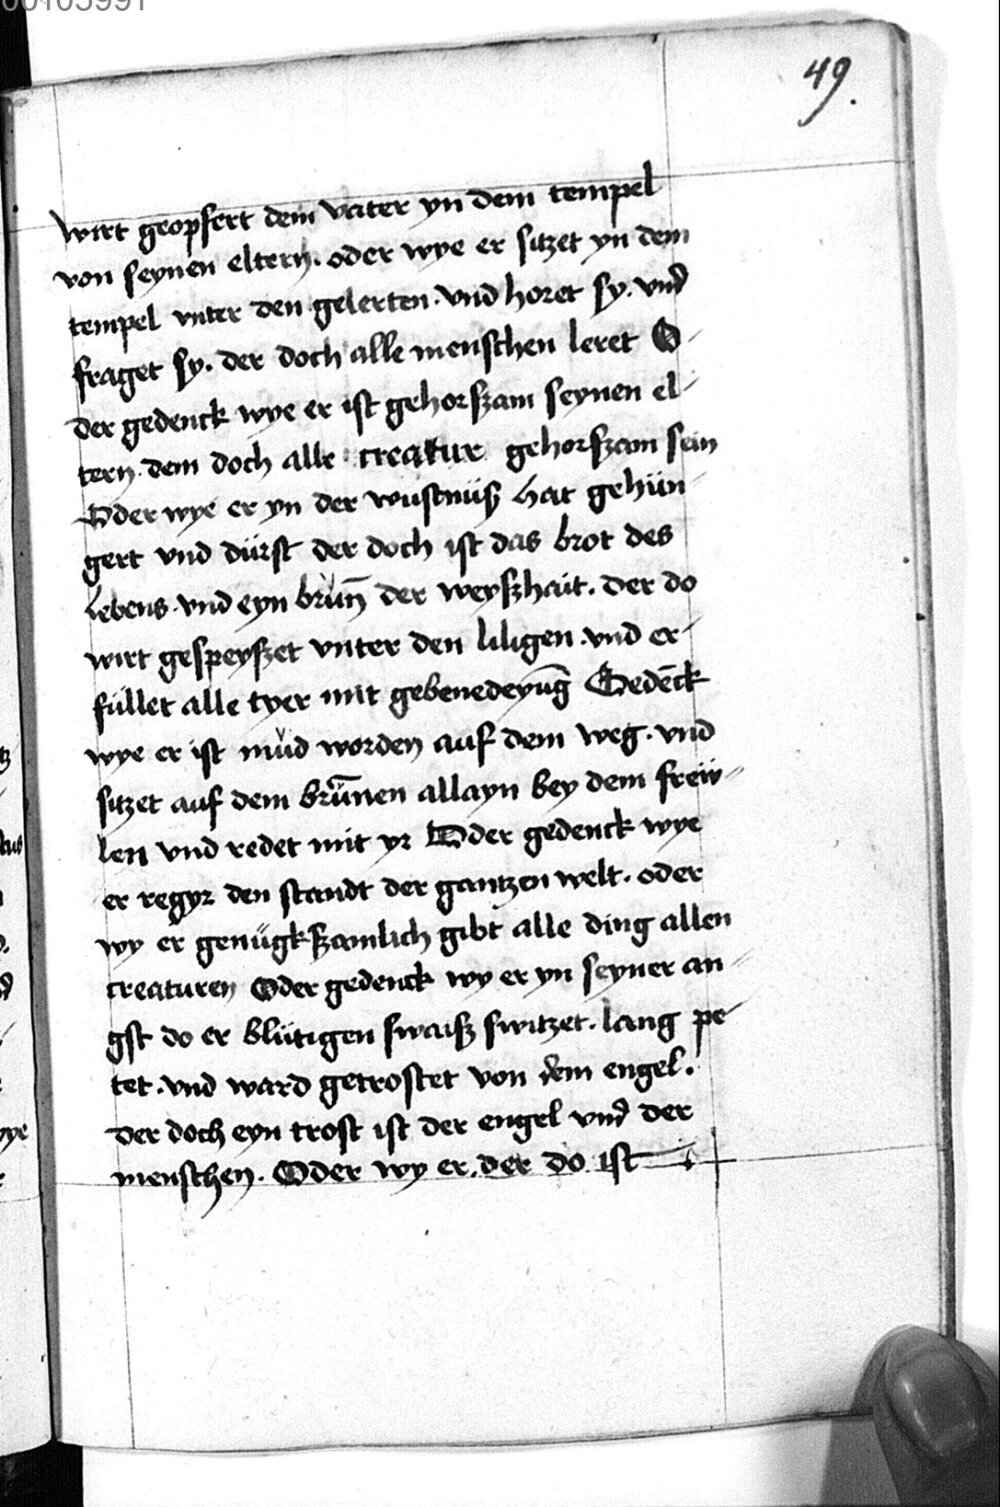 00103991
49.
wirt geopfert dem vater yn dem tempel
von seynen eltern. oder wye er sitzet yn dem
tempel vnter den gelerten. vnd horet sy. vnd
fraget sy. der doch alle menschen leret O-
der gedenck wye er ist gehorszam seynen el-
tern. dem doch alle creatur gehorszam sein
Oder wye er yn der wüstnüsz hat gehün-
gert vnd dürst der doch ist das brot des
lebens. vnd eyn brün̄ der weyszhait. der do
wirt gespeyszet vnter den liligen. vnd er-
füllet alle tyer mit gebenedeyūg Gedēck
wye er ist müd worden auf dem weg. vnd
sitzet auf dem brün̄nen allayn bey dem frew-
len vnd redet mit yr Oder gedenck wye
er regyr den standt der gantzen welt. oder
wy er genügkszamlich gibt alle ding allen
creaturen Oder gedenck wy er yn seyner an-
gst do er blütigen swaisz switzet. lang pe-
tet. vnd ward getrostet von dem engel.
der doch eyn trost ist der engel vnd der
menschen. Oder wy er. der do ist